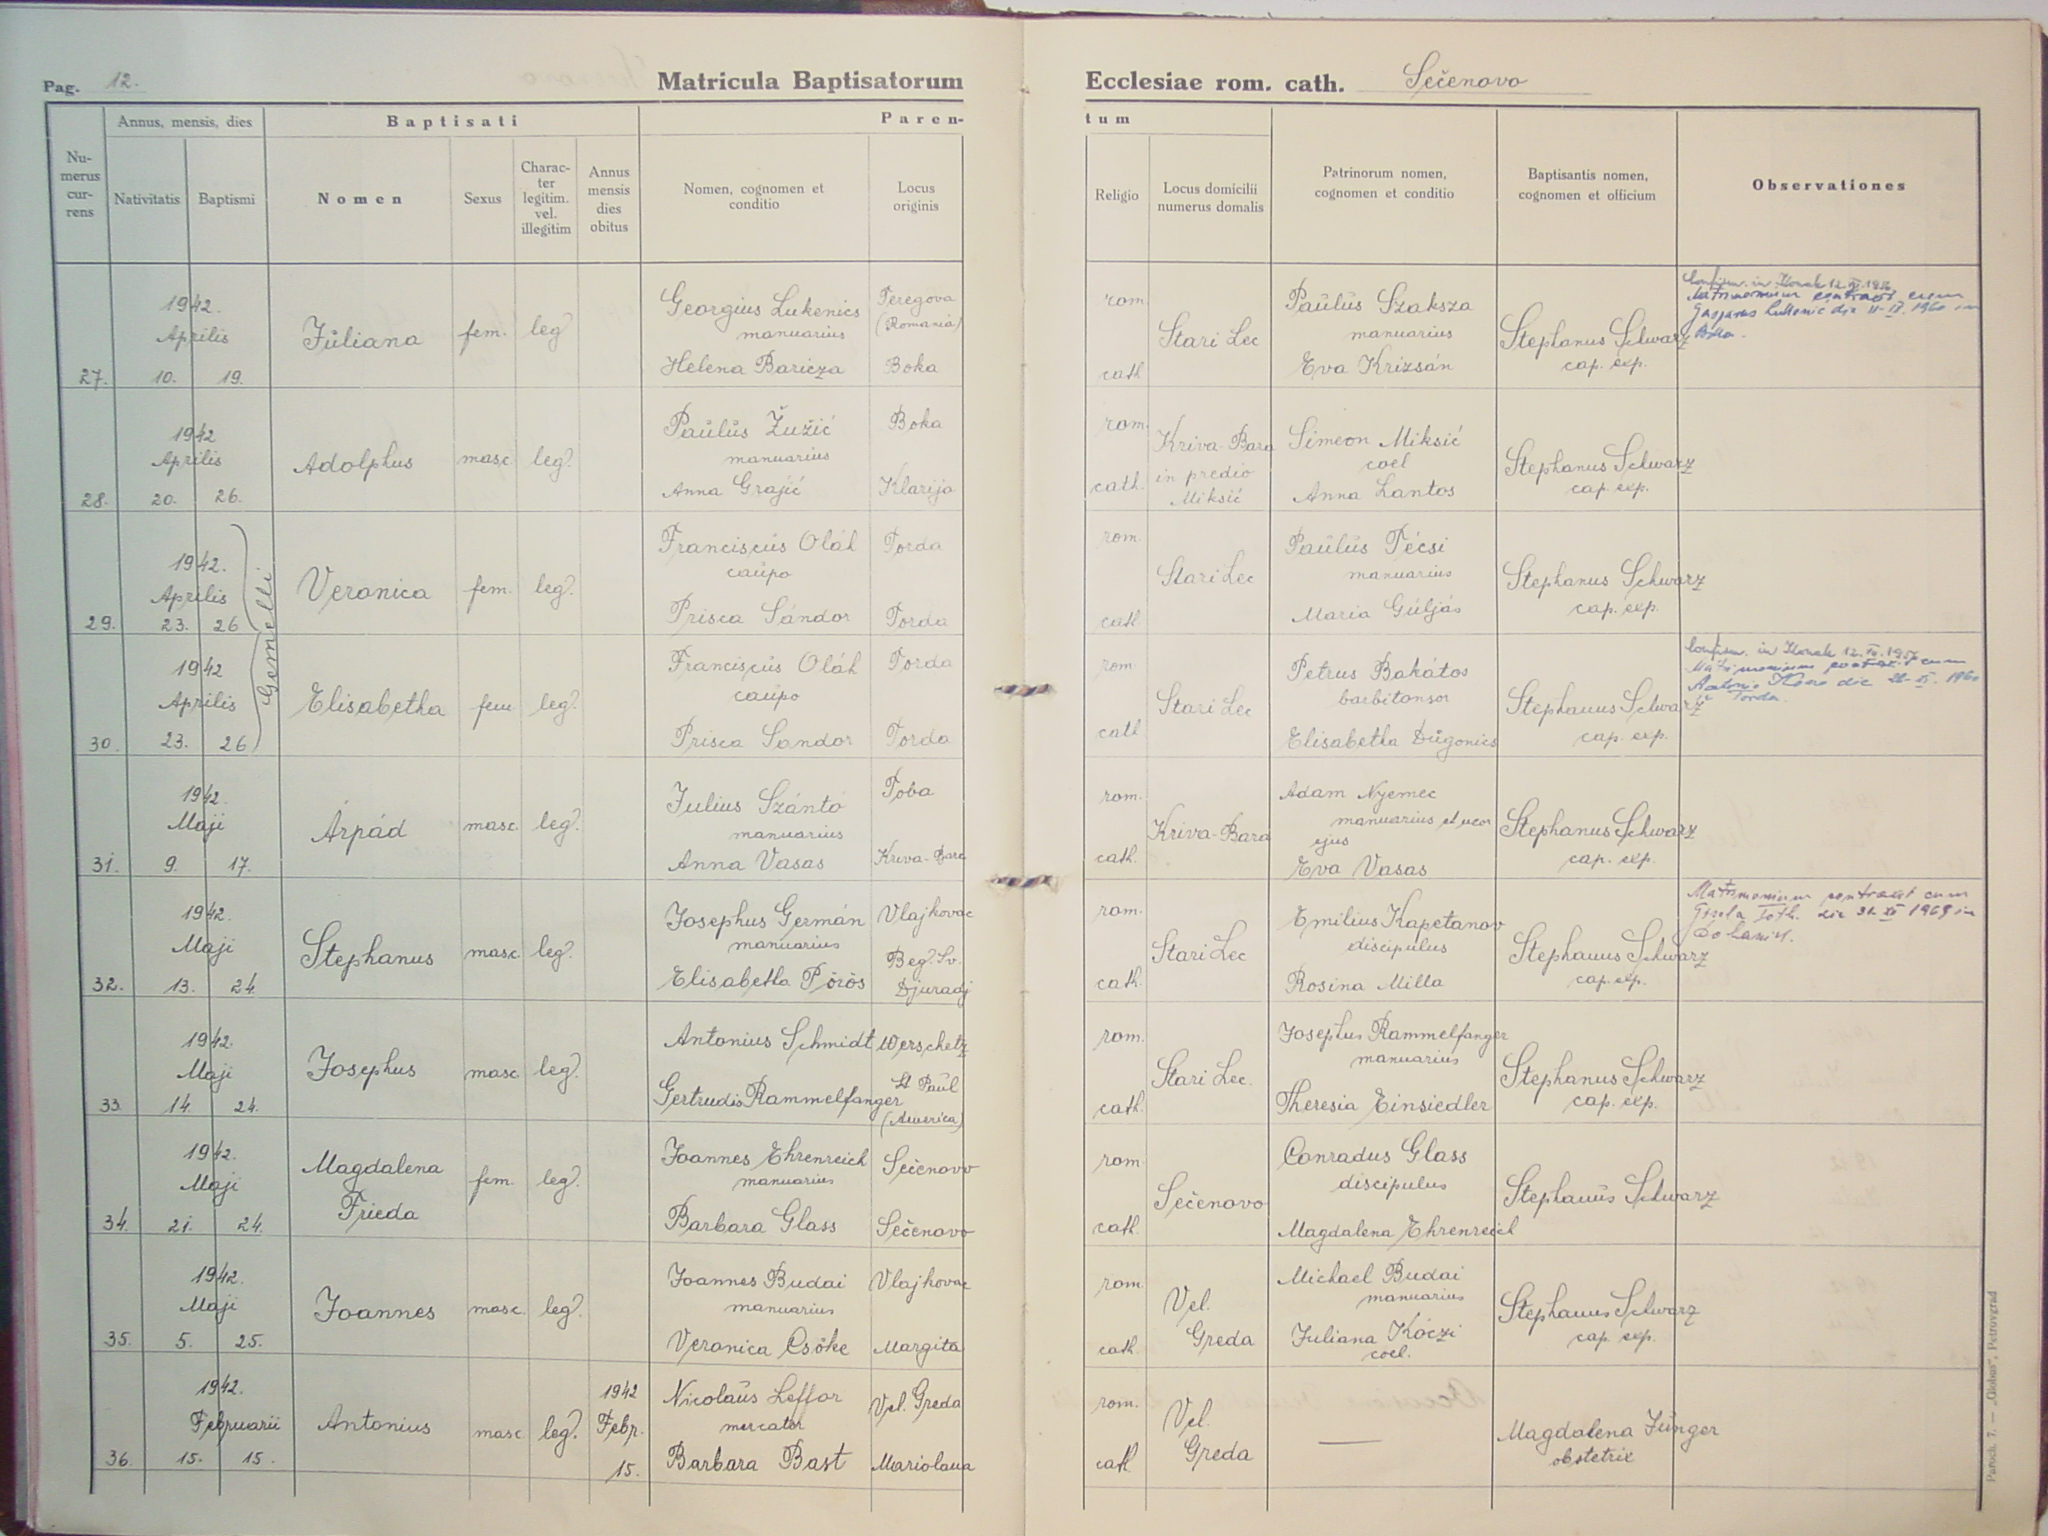 Pag. 12. Matricula Baptisatorum Ecclesiae rom. cath. Sečenovo
Numerus currens
Annus, mensis, dies
Nativitatis Baptismi
Baptisati
Nomen Sexus Character legitim. vel. illegitim Annus mensis dies obitus
Parentum
Nomen, cognomen et conditio Locus originis Religio Locus domicilii numerus domalis
Patrinorum nomen, cognomen et conditio
Baptisantis nomen, cognomen et officium
Observationes
27. 1942. Aprilis 10. 19. Júliana fem. leg.
Georgius Lukenics Teregova (Romania)
manuarius
Helena Baricza Boka
rom. cath. Stari Lec
Paŭlŭs Szaksza
manuarius
Eva Krizsán
Stephanus Schwarz
cap. exp.
Confirm. in 12. 1956
Matrimonium contraxit cum
die 1960 in
28. 1942 Aprilis 20. 26. Adolphus masc. leg.
Paŭlŭs Žužić Boka
manuarius
Anna Grajić Klarija
rom. cath. Kriva-Bara
in predio
Miksić
Simeon Miksić
coel
Anna Lantos
Stephanus Schwarz
cap. exp.
Gemelli
29. 1942. Aprilis 23. 26 Veronica fem. leg.
Franciscŭs Oláh Torda
caŭpo
Prisca Sándor Torda
rom. cath. Stari Lec
Paŭlŭs Pécsi
manuarius
Maria Gŭljás
Stephanus Schwarz
cap. exp.
30. 1942 Aprilis 23. 26 Elisabetha fem. leg.
Franciscŭs Oláh Torda
caŭpo
Prisca Sandor Torda
rom. cath Stari Lec
Petrus Bakátos
barbitonsor
Elisabetha Dŭgonics
Stephanus Schwarz
cap. exp.
Confirm. in 12. 1956
Matrimonium contraxit cum
Antonio die 1960
Torda.
31. 1942. Maji 9. 17. Árpád masc. leg.
Julius Szántó Toba
manuarius
Anna Vasas Kriva-Bara
rom. cath. Kriva-Bara
Adam Nyemec
manuarius et uxor
ejus
Eva Vasas
Stephanus Schwarz
cap. exp.
32. 1942. Maji 13. 24. Stephanus masc. leg.
Josephus Germán Vlajkovac
manuarius
Elisabetha Pörös Beg. Sv. Djuradj
rom. cath. Stari Lec
Emilius Kapetanov
discipulus
Rosina Milla
Stephanus Schwarz
cap. exp.
Matrimonium contraxit cum
Tóth. die 1969 in
33. 1942. Maji 14. 24. Josephus masc. leg.
Antonius Schmidt Werschetz
Gertrudis Rammelfanger St Paul
(America)
rom. cath. Stari Lec.
Josephus Rammelfanger
manuarius
Theresia Einsiedler
Stephanus Schwarz
cap. exp.
34. 1942. Maji 21. 24. Magdalena
Frieda fem. leg.
Joannes Ehrenreich Sečenovo
manuarius
Barbara Glass Sečenovo
rom cath. Sečenovo
Conradus Glass
discipulus
Magdalena Ehrenreich
Stephanŭs Schwarz
35. 1942. Maji 5. 25. Joannes masc. leg.
Joannes Budai Vlajkovac
manuarius
Veronica Csőke Margita
rom. cath. Vel. Greda
Michael Budai
manuarius
Juliana Kóczi
coel.
Stephanus Schwarz
cap. exp.
36. 1942. Februarii 15. 15. Antonius masc. leg. 1942 Febr. 15.
Nicolaŭs Leffor Vel. Greda
mercator
Barbara Bast Mariolana
rom. cath. Vel. Greda
—
Magdalena Jŭnger
obstetrix
Paroch. 7. — „Globus", Petrovgrad